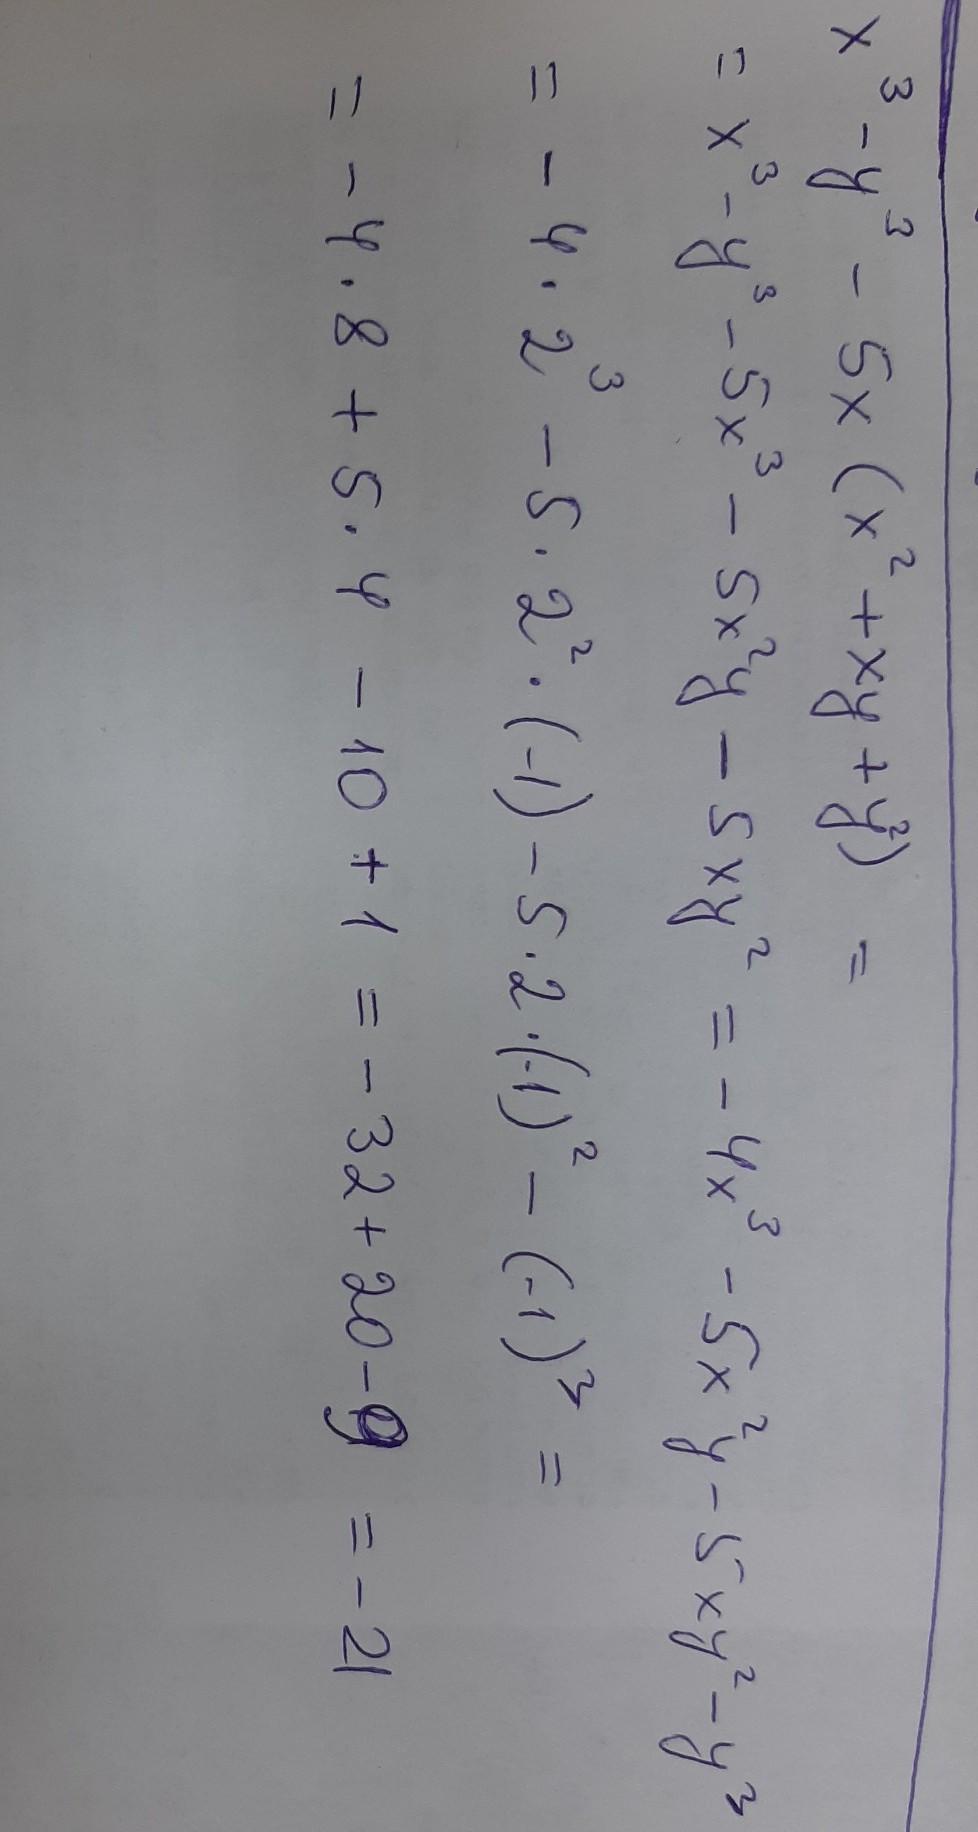 x³ - y³ - 5x (x² + xy + y²) =
= x³ - y³ - 5x³ - 5x²y - 5xy² = - 4x³ - 5x²y - 5xy² - y³
= - 4 · 2³ - 5 · 2² · (-1) - 5 · 2 · (-1)² - (-1)³ =
= - 4 · 8 + 5 · 4 - 10 + 1 = - 32 + 20 - 9 = - 21